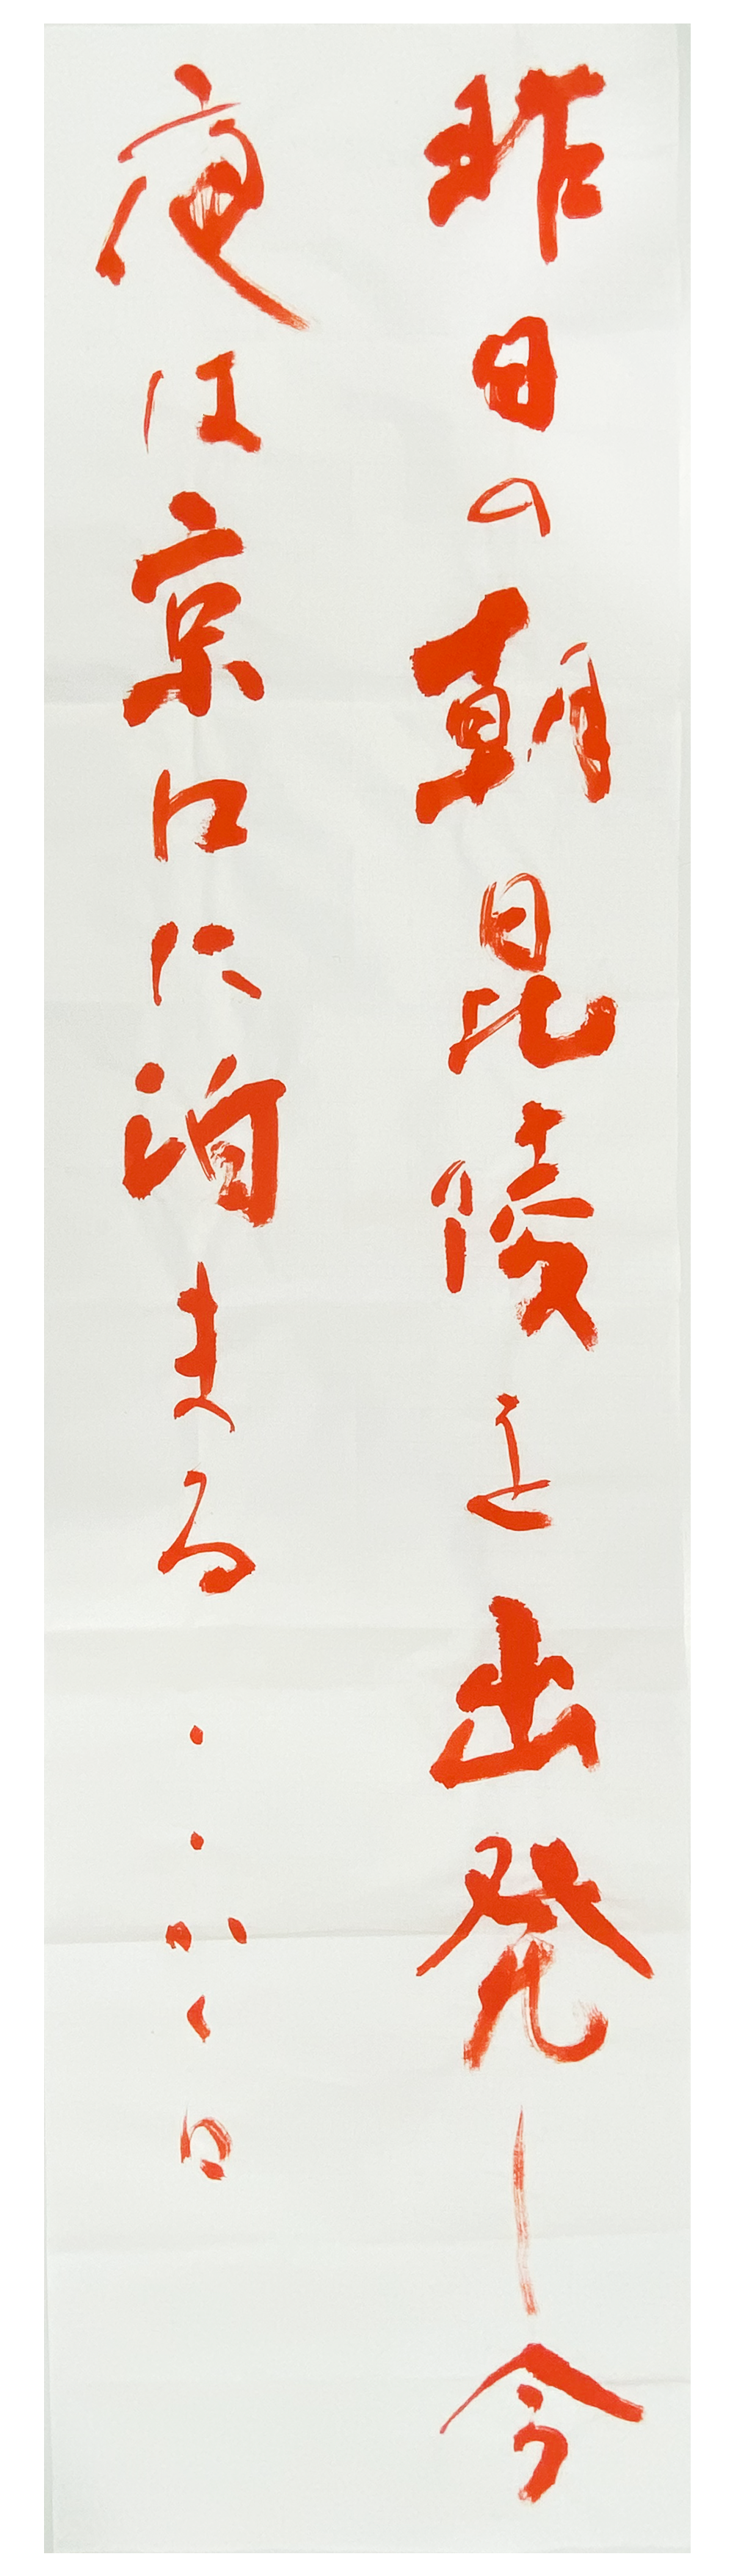 昨日の朝昆陵を出発し今
夜は京口に泊まる